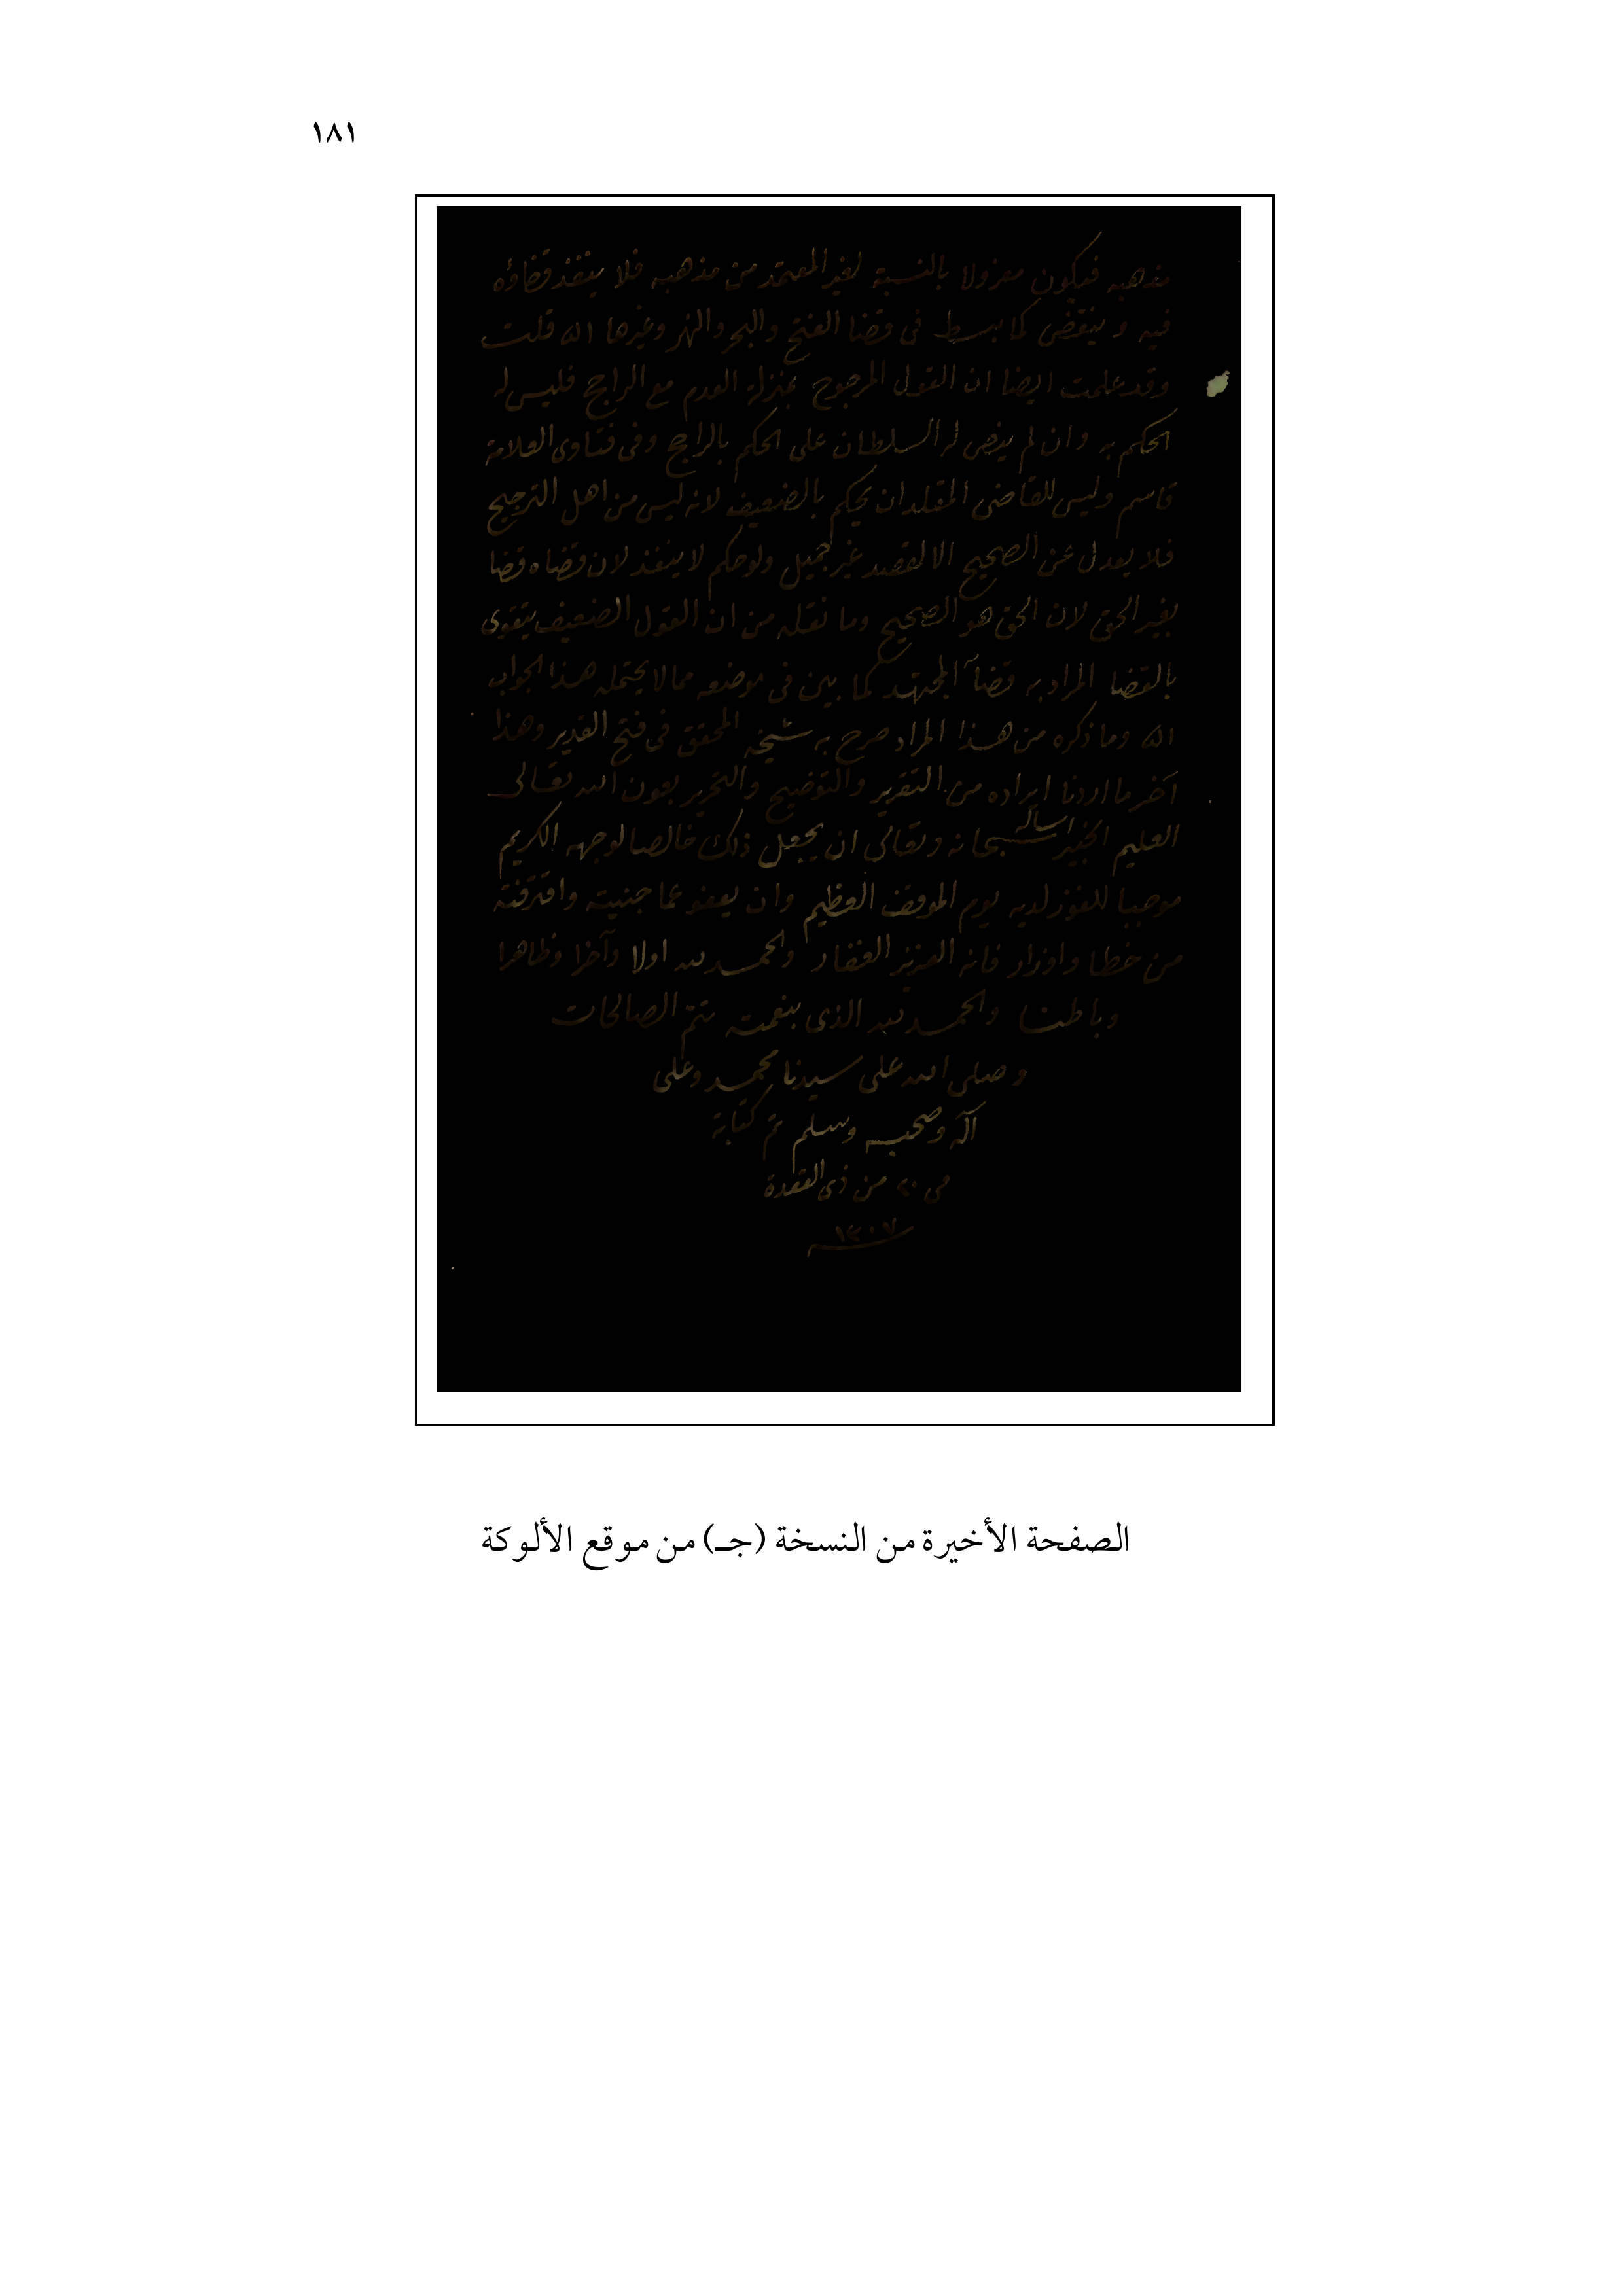 ١٨١
مذهبه فيكون معزولا بالنسبة لغير المعتمد من مذهبه فلا ينفذ قضاؤه
فيه و ينقض كما بسط في قضا الفتح والبحر والنهر وغيرها اه قلت
وقد علمت ايضا ان القول المرجوح بمنزلة العدم مع الراجح فليس له
الحكم به وان لم ينص له السلطان على الحكم بالراجح وفى فتاوى العلامة
قاسم وليس للقاضى المقلد ان يحكم بالضعيف لانه ليس من اهل الترجيح
فلا يعدل عن الصحيح الا لقصد غير جميل ولو حكم لا ينفذ لان قضاه قضا
بغير الحق لان الحق هو الصحيح وما نقله من ان القول الضعيف يتقوى
بالقضا المراد به قضآ المجتهد كما بين فى موضعه مما لا يحتمله هذا الجواب
اه وما ذكره من هذا المراد صرح به شيخه المحقق فى فتح القدير وهذا
آخر ما اردنا ايراده من التقرير والتوضيح والتحرير بعون الله تعالى
العليم الخبير اساله سبحانه وتعالى ان يجعل ذلك خالصا لوجهه الكريم
موجبا للفوز لديه يوم الموقف العظيم وان يعفو عما جنيته واقترفته
من خطا واوزار فانه العزيز الغفار والحمد لله اولا وآخرا وظاهرا
وباطنا والحمد لله الذى بنعمته تتم الصالحات
و صلى الله على سيدنا محمد وعلى
آله وصحبه وسلم تم كتابة
فى ٢٠ من ذى القعدة
١٣٠٧
الصفحة الأخيرة من النسخة (جـ) من موقع الألوكة